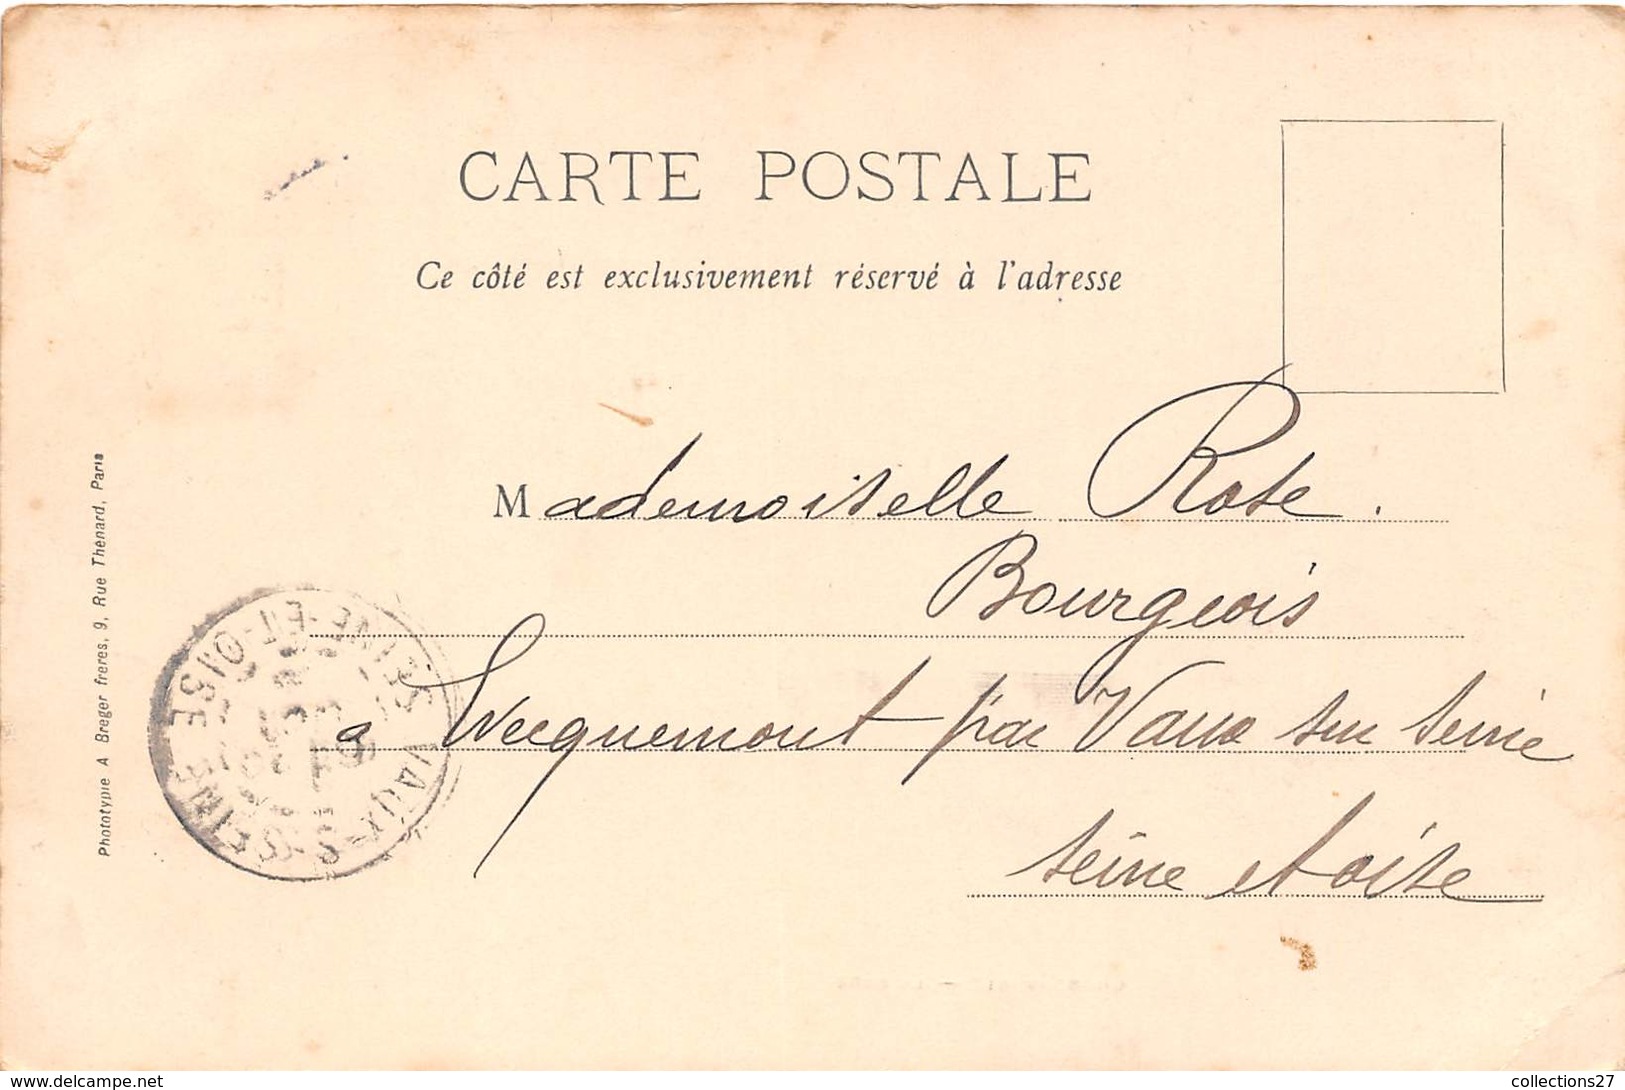 CARTE POSTALE
Ce côté est exclusivement réservé à l'adresse
Mademoiselle Rose.
Bourgeois
a Evecquemont par Vaux sur Seine
Seine et Oise
Phototypie A Breger freres, 9, Rue Thénard, Paris
VAUX-S-SEINE SEINE-ET-OISE
www.delcampe.net
collections27